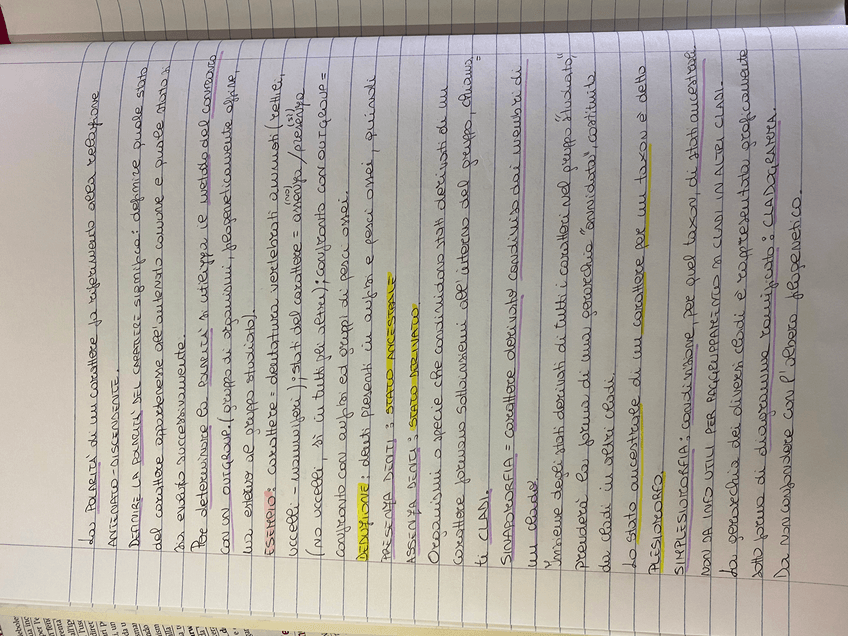 La POLARITÀ di un carattere fa riferimento alla relazione
ANTENATO-DISCENDENTE.
DEFINIRE LA POLARITÀ DEL CARATTERE significa: definire quale stato
del carattere appartenesse all'antenato comune e quale stato si
sia evoluto successivamente.
Per determinare la POLARITÀ si utilizza il metodo del confronto
con un OUTGROUP. (gruppo di organismi, filogeneticamente affine,
ma esterno al gruppo studiato).
ESEMPIO: carattere = dentatura vertebrati amnioti (rettili,
uccelli - mammiferi); stati del carattere = assenza / presenza
(NO) (SI)
(no uccelli, si in tutti gli altri); confronto con OUTGROUP =
confronto con anfibi ed gruppi di pesci ossei.
DEDUZIONE: denti presenti in anfibi e pesci ossei, quindi
PRESENZA DENTI: STATO ANCESTRALE
ASSENZA DENTI: STATO DERIVATO
Organismi o specie che condividono stati derivati di un
carattere formano sottoinsiemi all'interno del gruppo, chiama=
ti CLADI.
SINAPOMORFIA = carattere derivato condiviso dai membri di
un clado.
"Insieme degli stati derivati di tutti i caratteri nel gruppo studiato",
prenderà la forma di una gerarchia "annidata", costituita
da cladi in altri cladi.
Lo stato ancestrale di un carattere per un taxon è detto
PLESIOMORFO.
SIMPLESIOMORFIA: condivisione, per quel taxon, di stati ancestrali
NON DA INFO UTILI PER RAGGRUPPARE TAXA IN CLADI IN ALTRI CLADI.
La gerarchia dei diversi cladi è rappresentata graficamente
sotto forma di diagramma ramificato: CLADOGRAMMA.
Da non confondere con l'albero filogenetico.